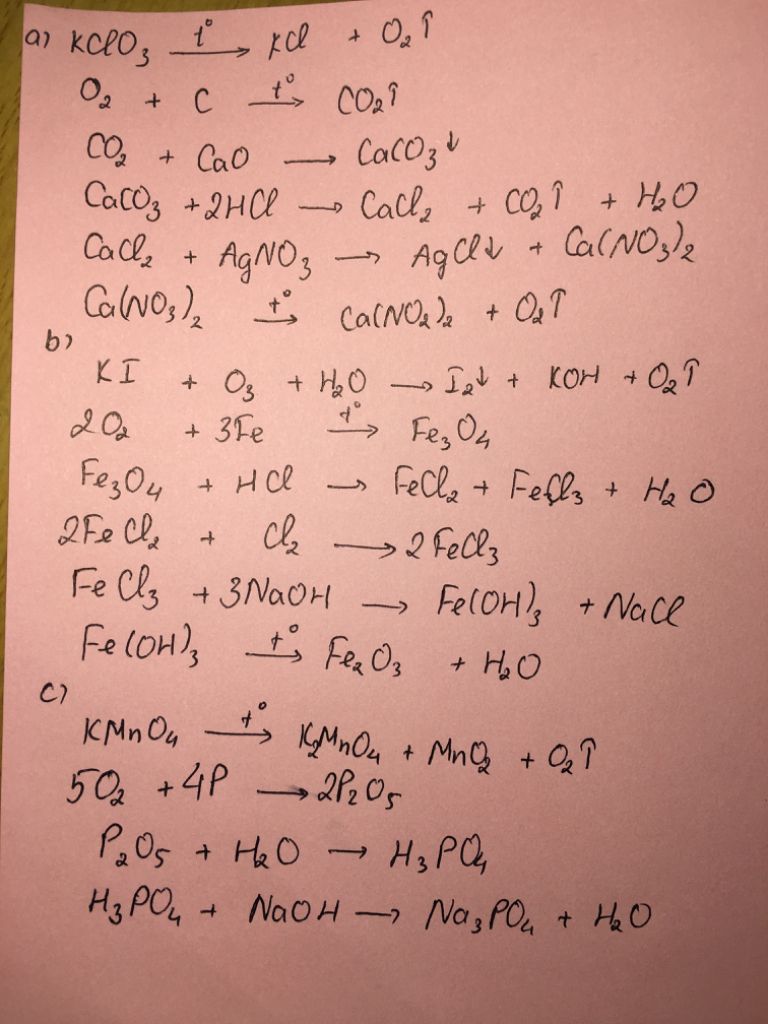 a) KClO₃ —t°→ KCl + O₂↑
O₂ + C —t°→ CO₂↑
CO₂ + CaO → CaCO₃↓
CaCO₃ + 2HCl → CaCl₂ + CO₂↑ + H₂O
CaCl₂ + AgNO₃ → AgCl↓ + Ca(NO₃)₂
Ca(NO₃)₂ —t°→ Ca(NO₂)₂ + O₂↑
b)
KI + O₃ + H₂O → I₂↓ + KOH + O₂↑
2O₂ + 3Fe —t°→ Fe₃O₄
Fe₃O₄ + HCl → FeCl₂ + FeCl₃ + H₂O
2FeCl₂ + Cl₂ → 2FeCl₃
FeCl₃ + 3NaOH → Fe(OH)₃ + NaCl
Fe(OH)₃ —t°→ Fe₂O₃ + H₂O
c)
KMnO₄ —t°→ K₂MnO₄ + MnO₂ + O₂↑
5O₂ + 4P → 2P₂O₅
P₂O₅ + H₂O → H₃PO₄
H₃PO₄ + NaOH → Na₃PO₄ + H₂O